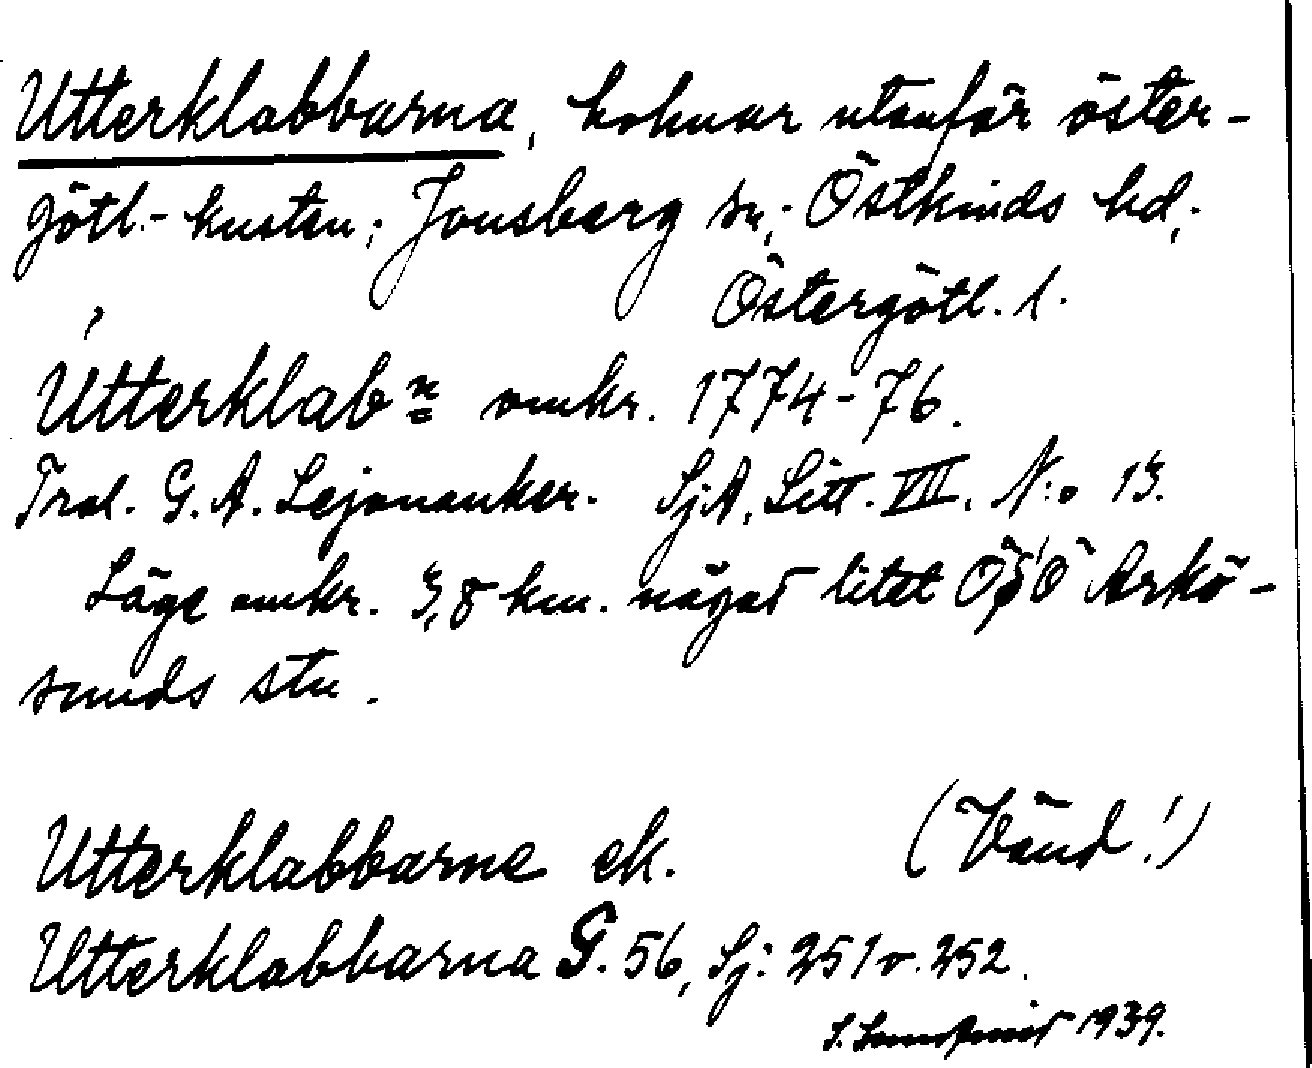 Utterklabbarna, holmar utanför öster-
götl.-kusten; Jonsberg sn; Östkinds hd;
Östergötl. l.
Utterklabn omkr. 1774-76.
Trol. G. A. Lejonanker. SjA, Litt. VII. N:o 13.
Läge omkr. 3,8 km. något litet OSO Arkö-
sunds stn.
Utterklabbarne ek. (Vänd!)
Utterklabbarna G. 56, Sj: 251 o. 252.
1939.